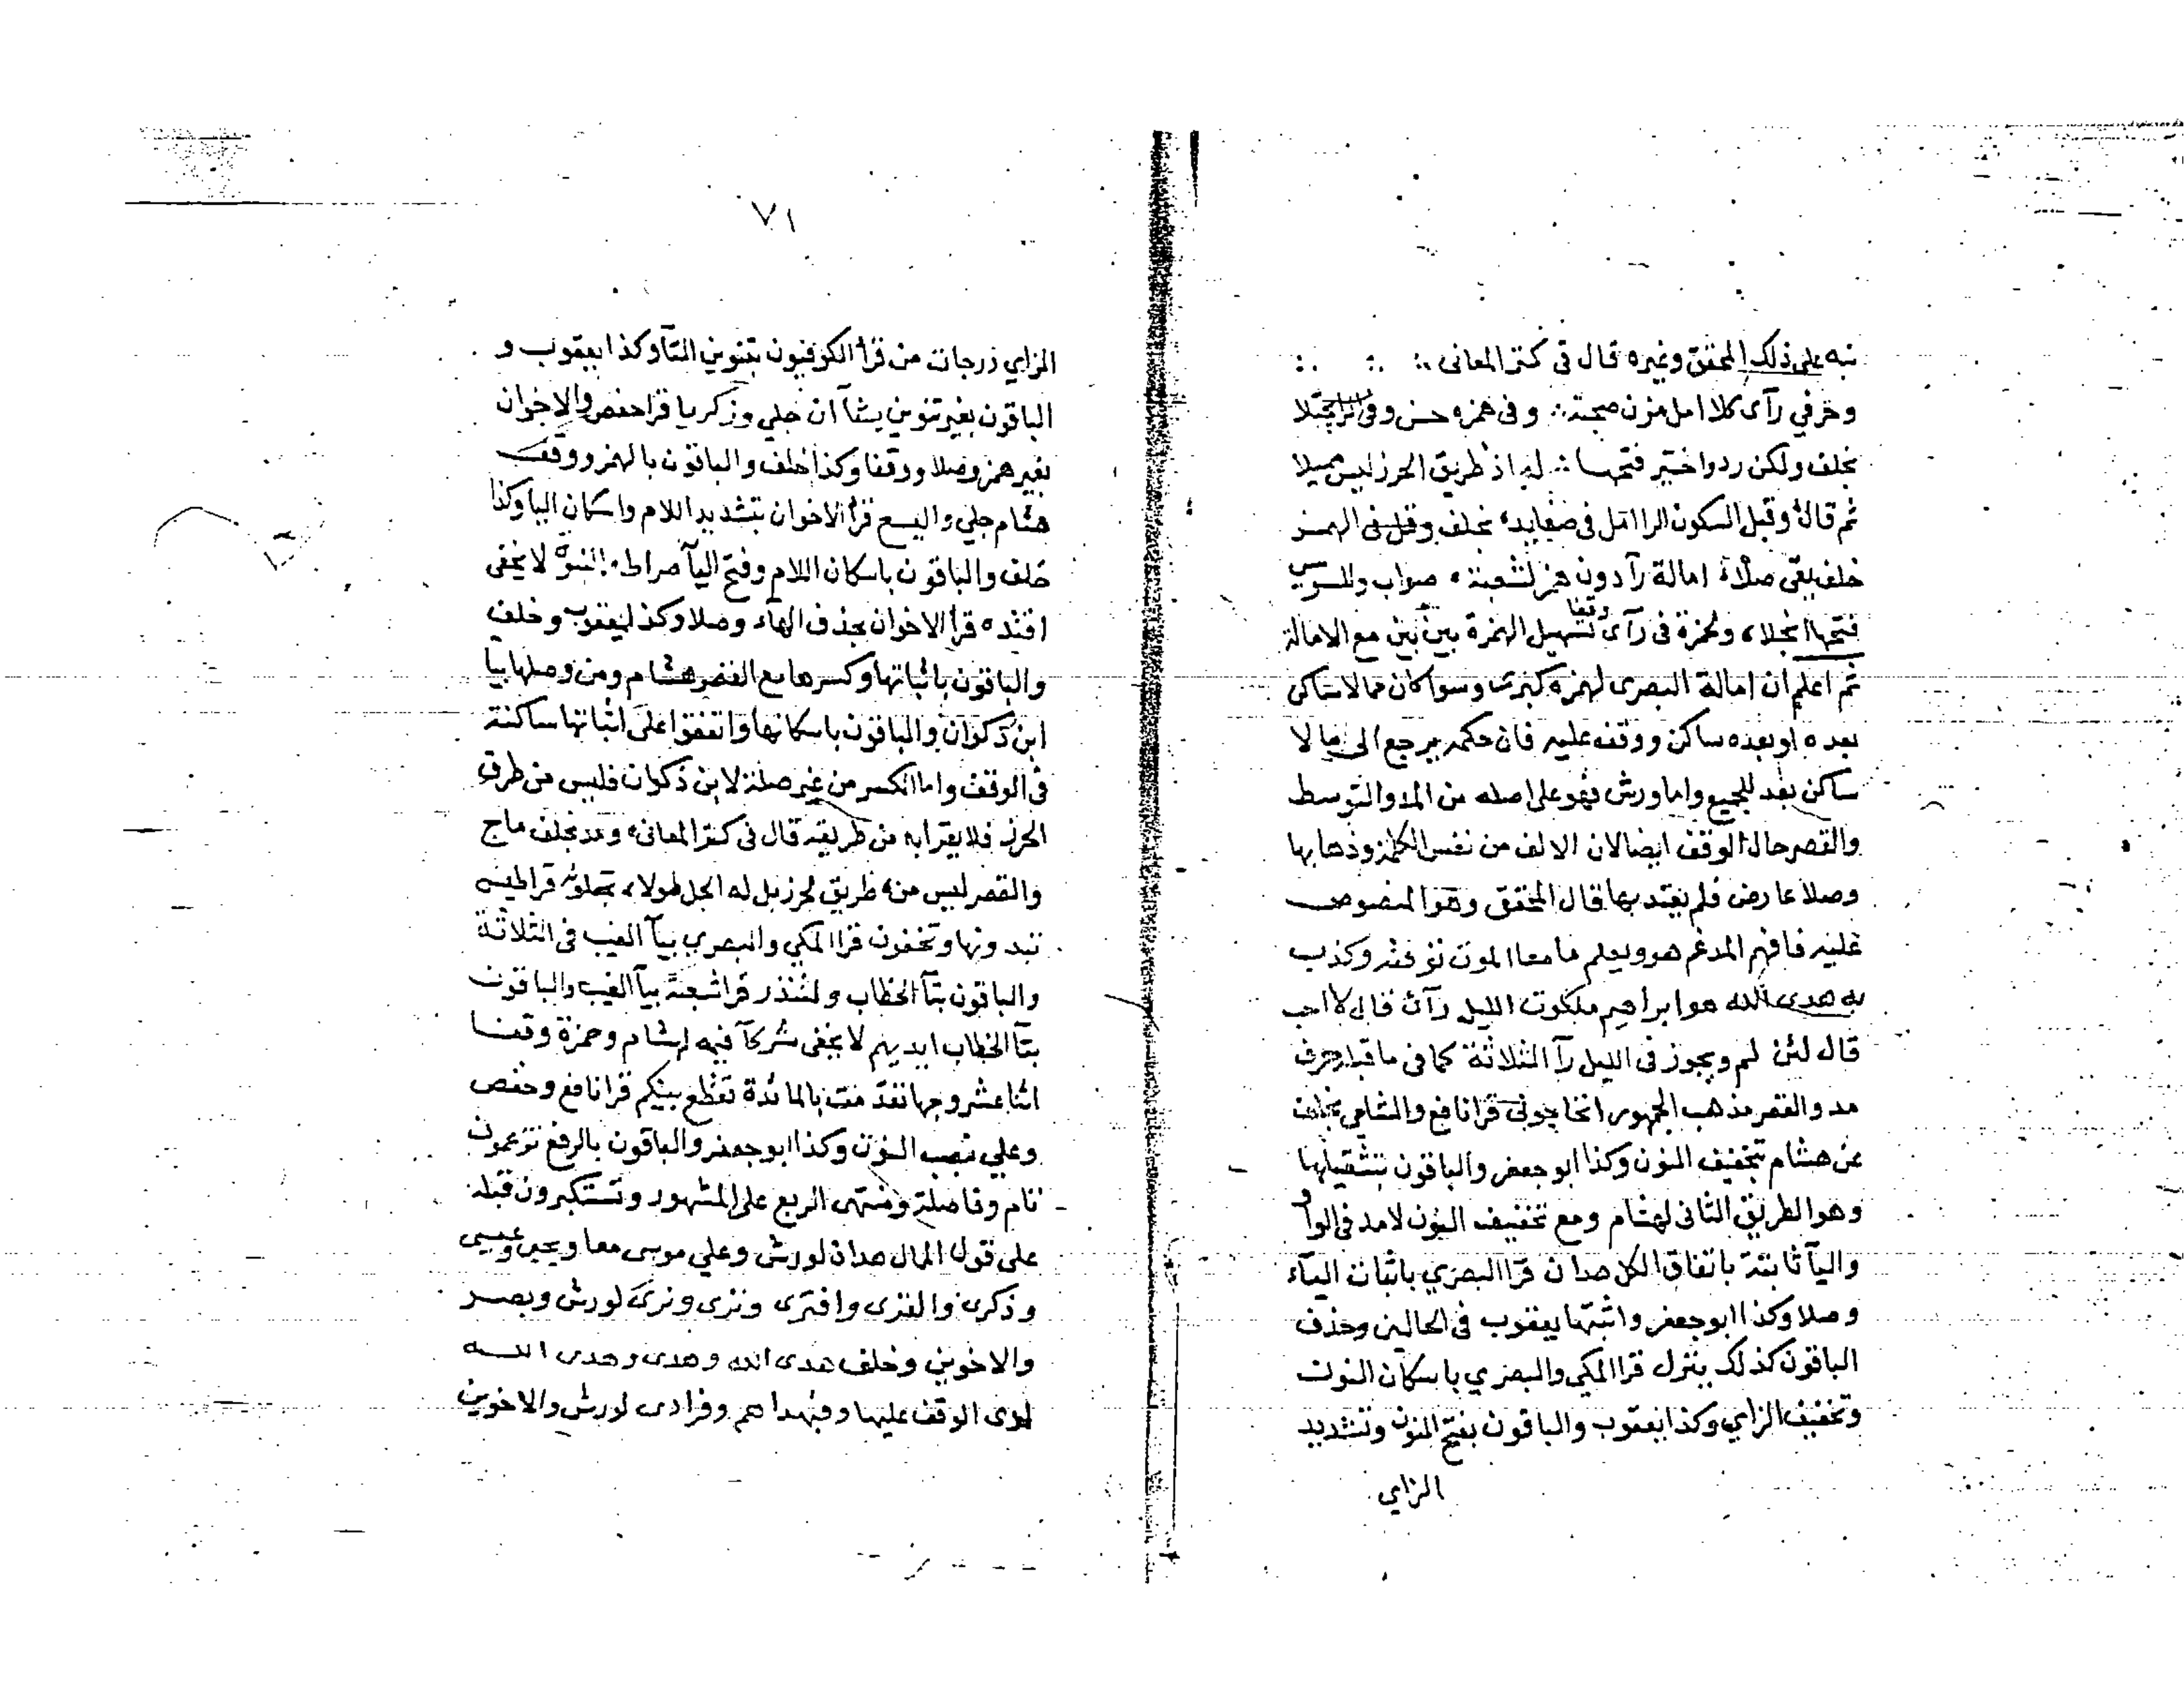 نبه على ذلك المحقق وغيره قال في كنز المعاني
وحرفي رآى كلا امل مزن صحبة وفي همزه حسن وفي الرا يجتلا
بخلف ولكن ردوا ختير فتحها له اذ طريق الحرز ليس مميلا
ثم قال وقبل السكون الرا امل في صفا يد بخلف وقل في الهمز
خلف يقي صلا امالة رآ دون همز لشعبة صواب وللسوسي
فتحها انجلا ولحمزة في رآى وقفا تسهيل الهمزة بين بين مع الامالة
ثم اعلم ان امالة البصري لهمزه كبرى وسوا كان مما لا ساكن
بعده او بعده ساكن ووقف عليه فان حكمه يرجع الى ما لا
ساكن بعد للجميع واما ورش فهو على اصله من المد والتوسط
والقصر حال الوقف ايضا لان الالف من نفس الكلمة وذهابها
وصلا عارض فلم يعتد بها قال المحقق وهو المنصوص
عليه فافهم المدغم هو ويعلم ما معا الموت توفته وكذب
به هدى الله هو ابراهيم ملكوت الليل رآى قال لا احب
قال لئن لم ويجوز في الليل رآ الثلاثة كما في ما قبله حرف
مد والقصر مذهب الجمهور اتحاجوني قرا نافع والشامي بخلف
عن هشام بتخفيف النون وكذا ابو جعفر والباقون بتثقيلها
وهو الطريق الثاني لهشام ومع تخفيف النون لا مد في الواو
واليآ ثابتة باتفاق الكل هدان قرا البصري باثبات اليآء
وصلا وكذا ابو جعفر واثبتها يعقوب في الحالين وحذف
الباقون كذلك ينزل قرا المكي والبصري باسكان النون
وتخفيف الزاي وكذا يعقوب والباقون بفتح النون وتشديد
الزاي
٧١
الزاي درجات من قرا الكوفيون بتنوين التآ وكذا يعقوب و
الباقون بغير تنوين يشآ ان جلي وزكريا قرا حفص والاخوان
بغير همز وصلا ووقفا وكذا خلف والباقون بالهمز ووقف
هشام جلي واليسع قرا الاخوان بتشديد اللام واسكان اليآ وكذا
خلف والباقون باسكان اللام وفتح اليآ صراط والنبوة لا يخفى
اقتده قرا الاخوان بحذف الهآء وصلا وكذا يعقوب وخلف
والباقون باثباتها وكسرها مع القصر هشام ومن وصلها بيا
ابن ذكوان والباقون باسكانها واتفقوا على اثباتها ساكنة
في الوقف واما الكسر من غير صلة لابن ذكوان فليس من طرق
الحرز فلا يقرا به من طريقه قال في كنز المعاني ومد بخلف ماج
والقصر ليس من طريق لحرز بل له الجل طولا تجعلونه قراطيس
تبدونها وتخفون قرا المكي والبصري بيآ الغيب في الثلاثة
والباقون بتآ الخطاب ولتنذر قرا شعبة بيآ الغيب والباقون
بتآ الخطاب ايديهم لا يخفى شركآ فيه لهشام وحمزة وقفا
اثنا عشر وجها تقدمت بالمائدة تقطع بينكم قرا نافع وحفص
وعلي نصب النون وكذا ابو جعفر والباقون بالرفع تزعمون
تام وفاصلة ومنتهى الربع على المشهور وتستكبرون قبله
على قول الممال هدان لورش وعلي موسى معا ويحيى وعيسى
وذكرى والقرى وافترى وترى ونرى لورش وبصر
والاخوين وخلف هدى الله وهدى وهدى الله
لدى الوقف عليها وفبهداهم وفرادى لورش والاخوين